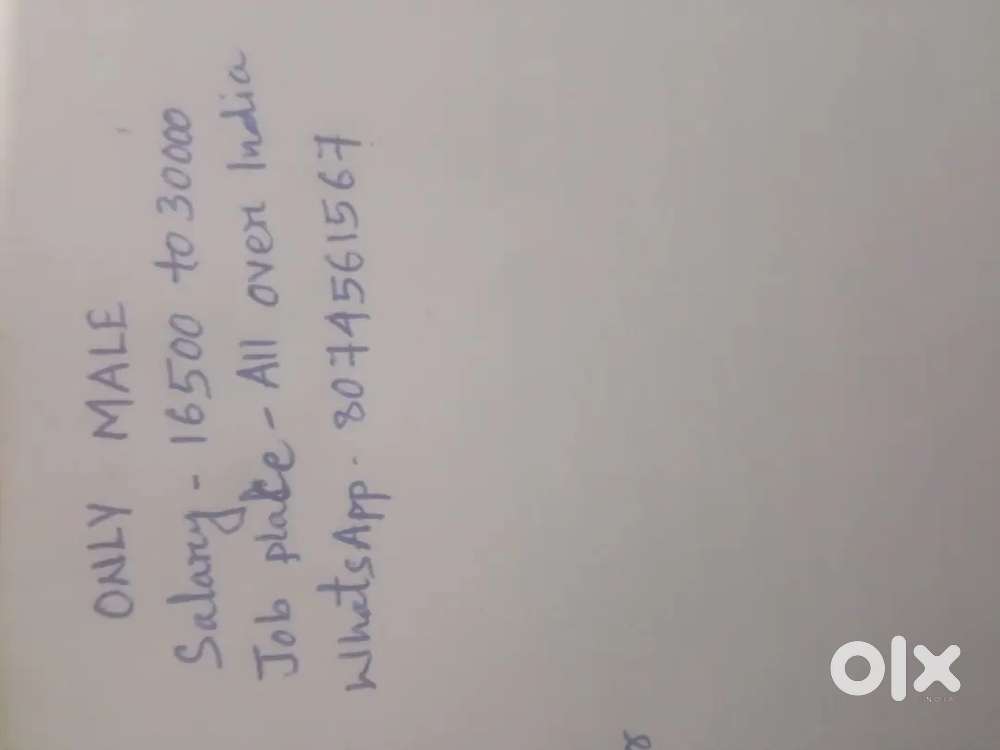 ONLY MALE
Salary - 16500 to 30000
Job place - All over India
WhatsApp. 8074561567
olx
INDIA